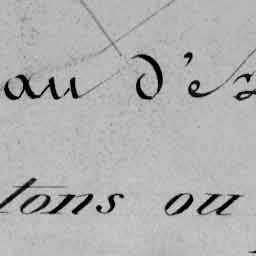 au d'e
tons ou